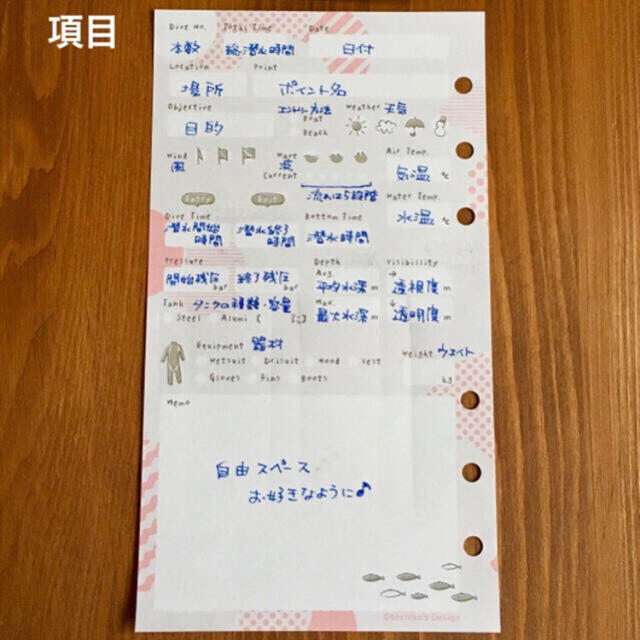 項目
Dive No. Total Time Date
本数 総潜水時間 日付
Location Point
場所 ポイント名
Objective エントリー方法 Weather 天気
目的 Boat
Beach
Wind Wave Air Temp.
風 波 気温 ℃
Current
流れは5段階 Water Temp.
Entry Exit 水温 ℃
Dive Time Bottom Time
潜水開始時間 潜水終了時間 潜水時間
Pressure Depth Visibility
開始残圧 bar 終了残圧 bar Avg. 平均水深 m → 透視度 m
Tank タンクの種類・容量 Max. 最大水深 m ↓ 透明度 m
Steel Alumi
Equipment 器材 Weight ウエイト
Wetsuit Drisuit Hood Vest
Gloves Fins Boots kg
Memo
自由スペース
お好きなように♪
©bachiko's Design